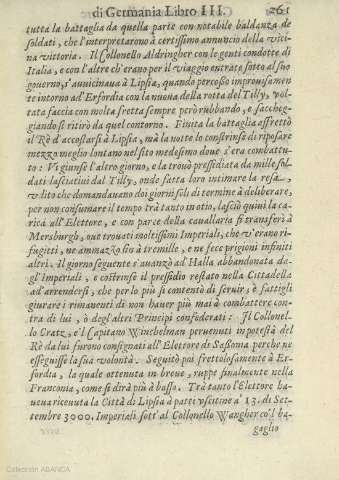 di Germania Libro III. 261
tutta la battaglia da quella parte con notabile baldanza de
soldati, che l'interpretarono à certissimo annuncio della vici-
na vittoria. Il Collonello Aldringher con le genti condotte di
Italia, e con l'altre ch'erano per il viaggio entrate sotto al suo
governo, s'auuicinaua à Lipsia, quando percosso improuisamen-
te intorno ad Erfordia con la nuoua della rotta del Tilly, vol-
tata faccia con molta fretta sempre però rubbando, e sacchég-
giando si ritirò da quel contorno. Finita la battaglia affrettò
il Rè d'accostarsi à Lipsia, mà la notte lo constrinse di riposare
mezzo meglio lontano nel sito medesimo doue s'era combattu-
to: Vi giunse l'altro giorno, e la trouò presidiata da mille sol-
dati lasciatiui dal Tilly, onde fatta loro intimare la resa,
vdito che domandauano doi giorni soli di termine à deliberare,
per non consumare il tempo trà tanto in otio, lasciò quiui la ca-
rica all'Elettore, e con parte della cauallaria si transferì à
Mersburgh, oue trouati moltissimi Imperiali, che v'erano ri-
fugitti, ne ammazzò sio à tremille, e ne fece prigioni infiniti
altri. Il giorno seguente s'auanzò ad Halla abbandonata da-
gl'Imperiali, e costrinse il pressidio restato nella Cittadella
ad arrendersi, che per lo più si contentò di seruir, è fattigli
giurare i rimanenti di non hauer più mai à combattere con-
tra di lui, ò degl altri Principi confederati: Il Collonel-
lo Cratz, e'l Capitano Winchelman peruenuti in potestà del
Rè da lui furono consignati all'Elettore de Sassonia perche ne
esseguisse la sua volontà. Seguitò poi frettolosamente à Er-
fordia, la quale ottenuta in breve, ruppe finalmente nella
Franconia, come si dirà più à basso. Trà tanto l'Elettore ha-
ueua riceuuta la Città di Lipsia à patti vscitine a' 13. di Set-
tembre 3000. Imperiali sott'al Collonello Wangher co'l ba-
gaglio
Colección ABANCA